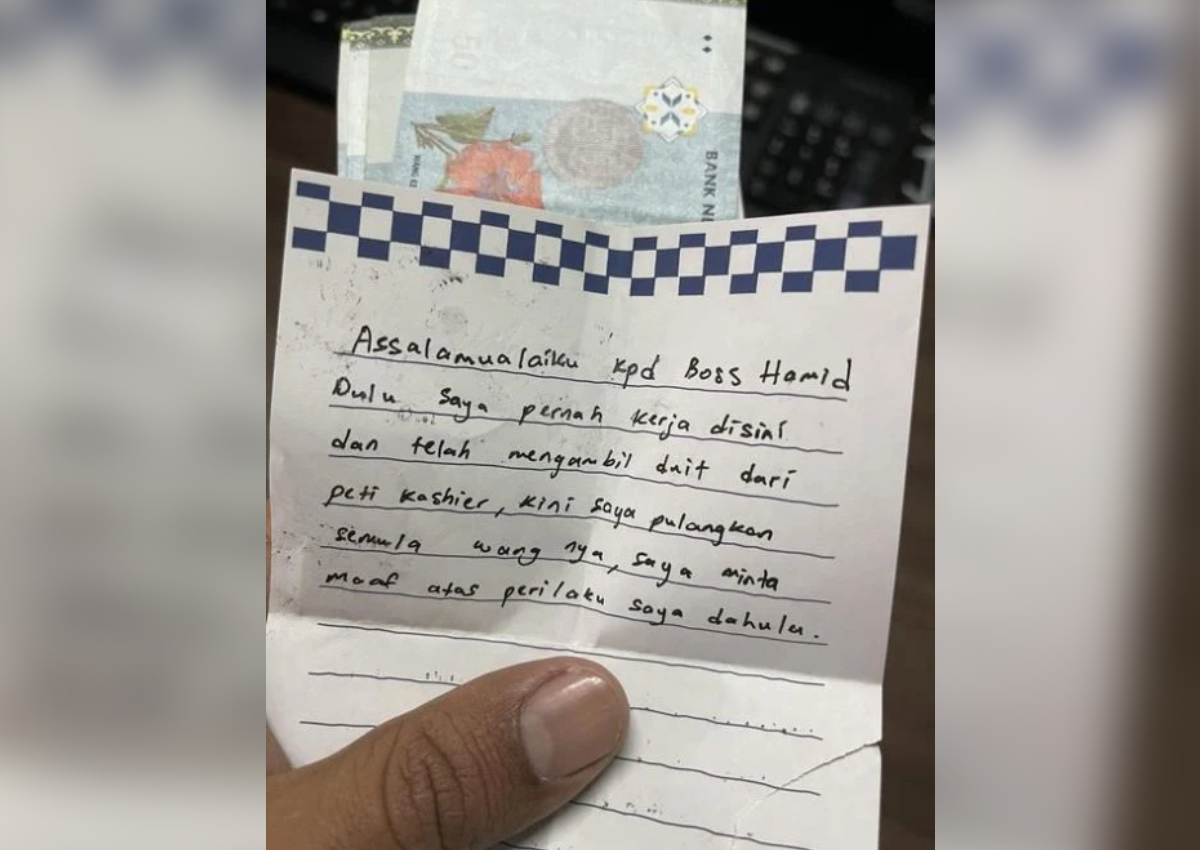 BANK NE
Assalamualaiku kpd Boss Hamid
Dulu saya pernah kerja disini
dan telah mengambil duit dari
peti kashier, kini saya pulangkan
semula wang nya, saya minta
maaf atas perilaku saya dahulu.